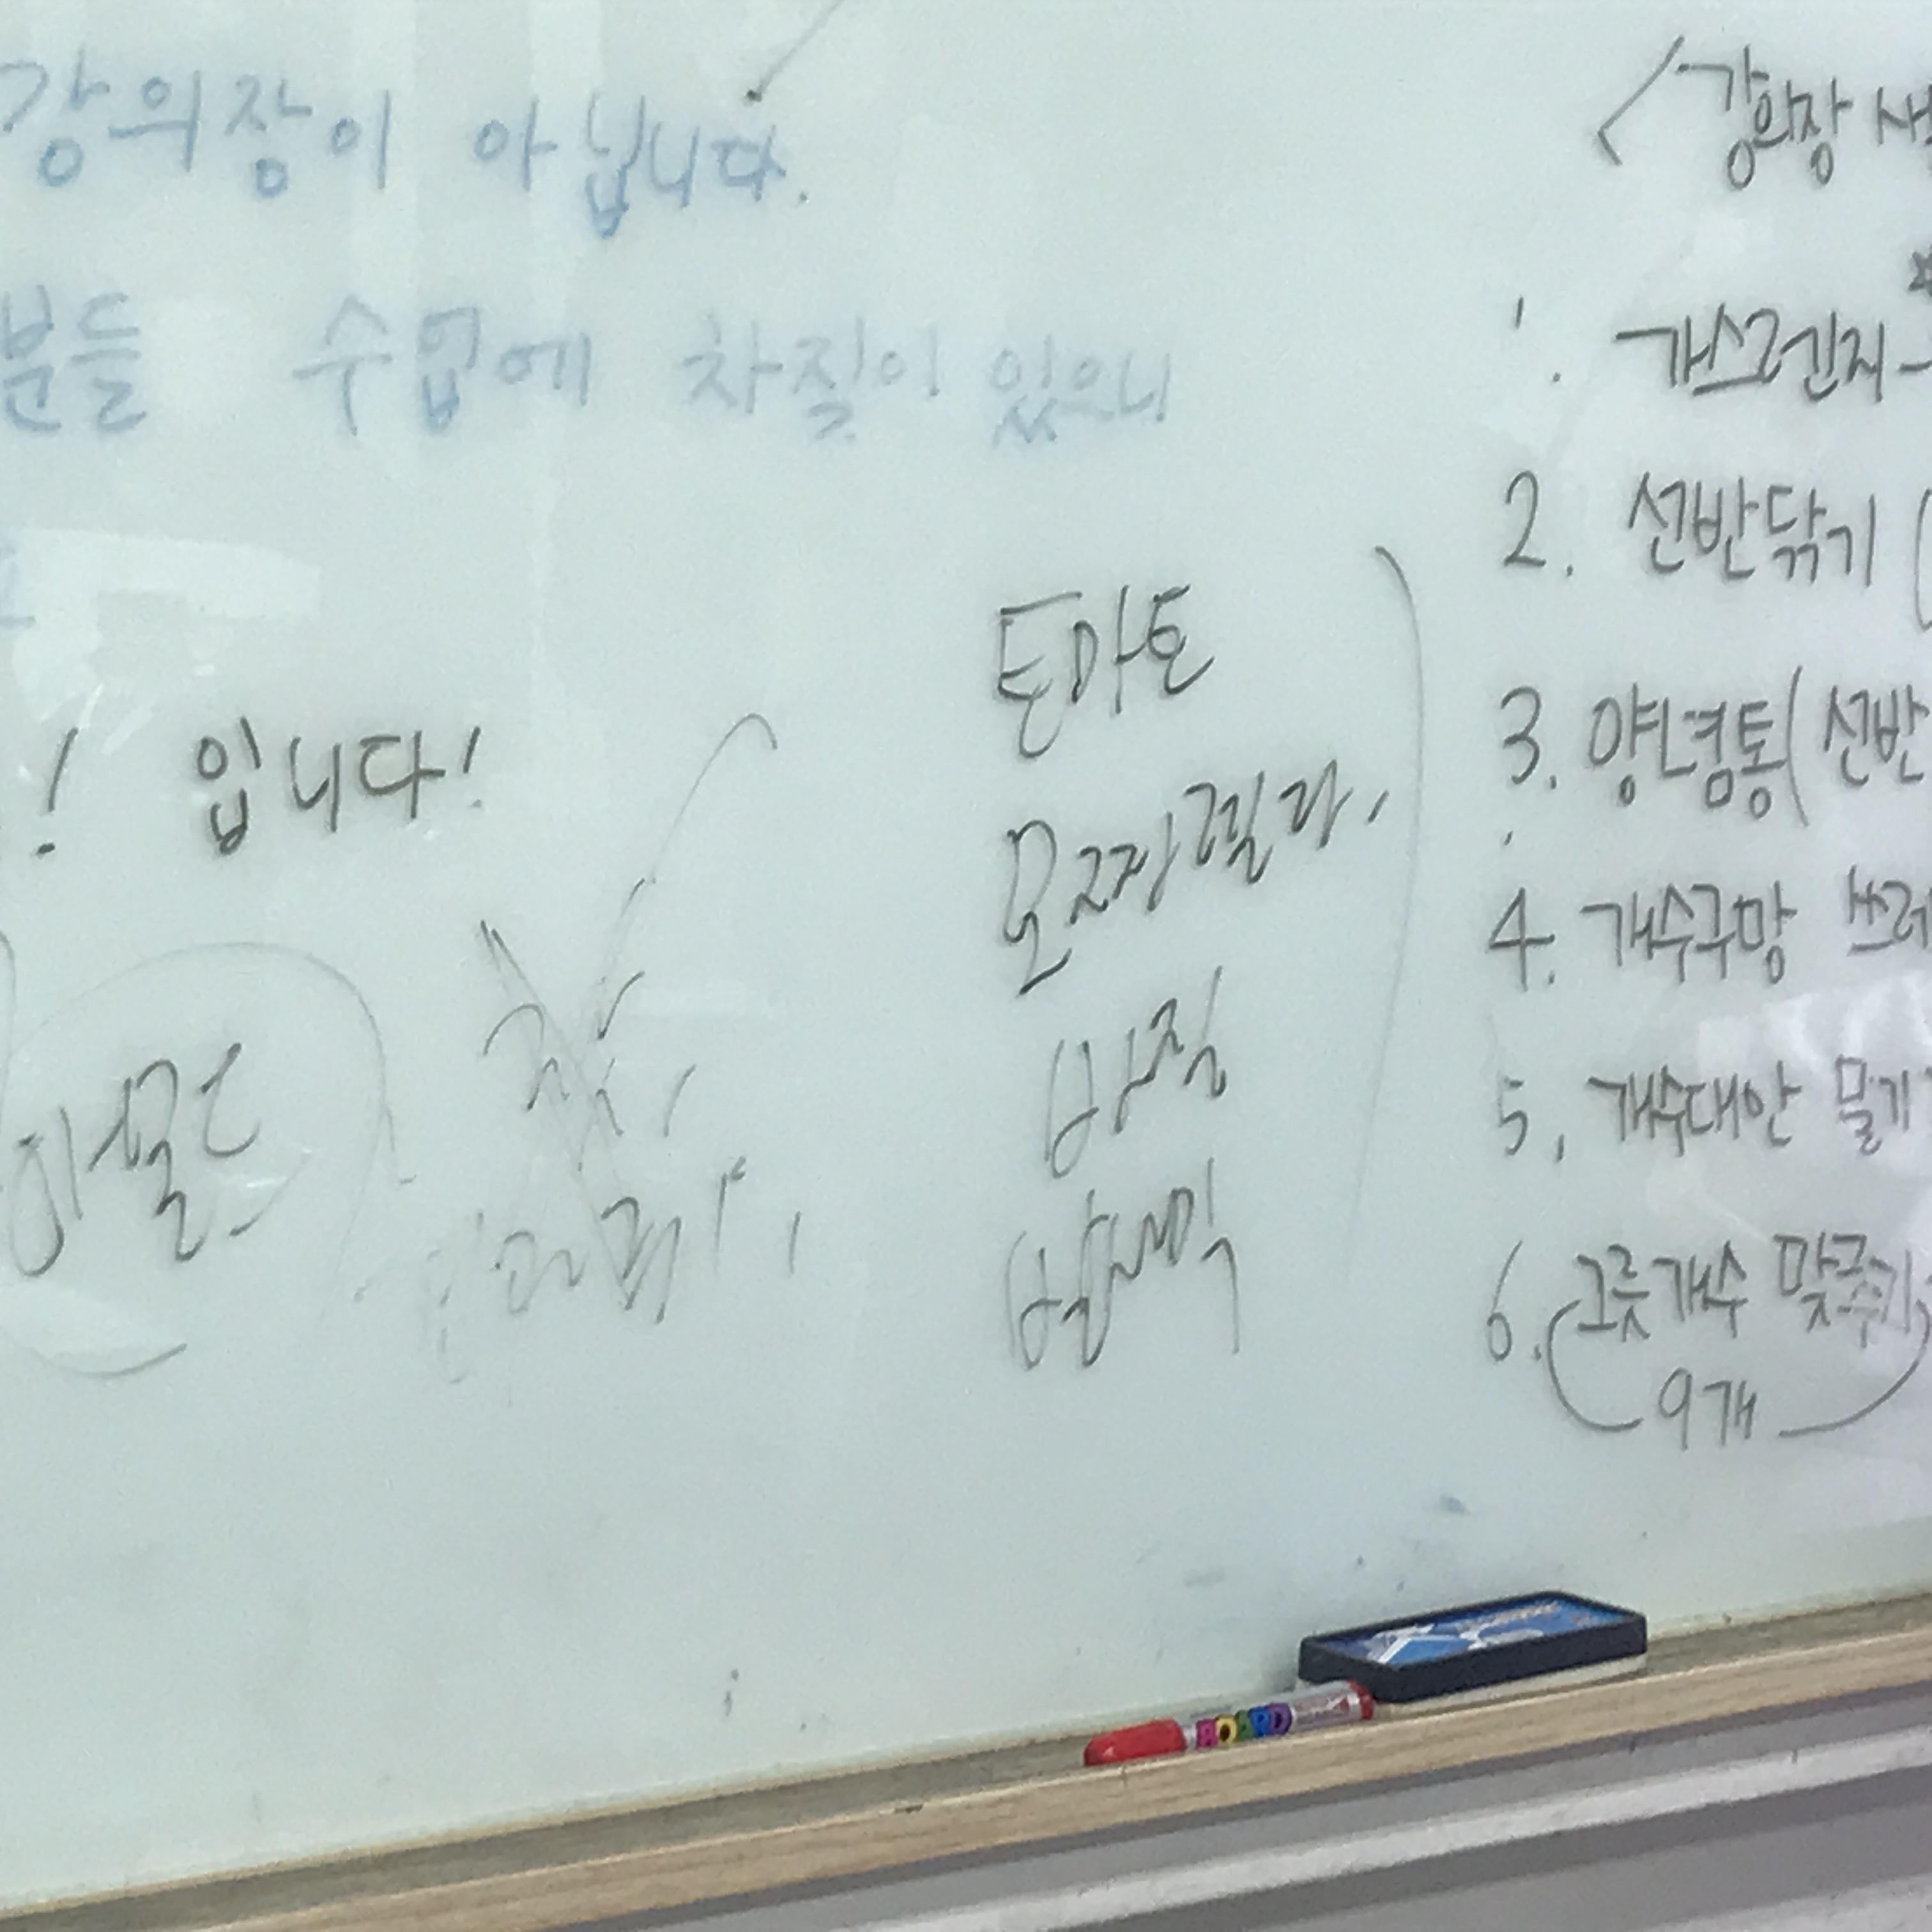 강의장이 아닙니다.
분들 수업에 차질이 있으니
! 입니다!
토마토
모짜렐라,
바질
발사믹
<강의장
1. 가스렌지
2. 선반닦기 (
3. 양념통(선반
4. 개수구망
5, 개수대안 물기
6. 그릇개수 맞추기
9개
BOARD